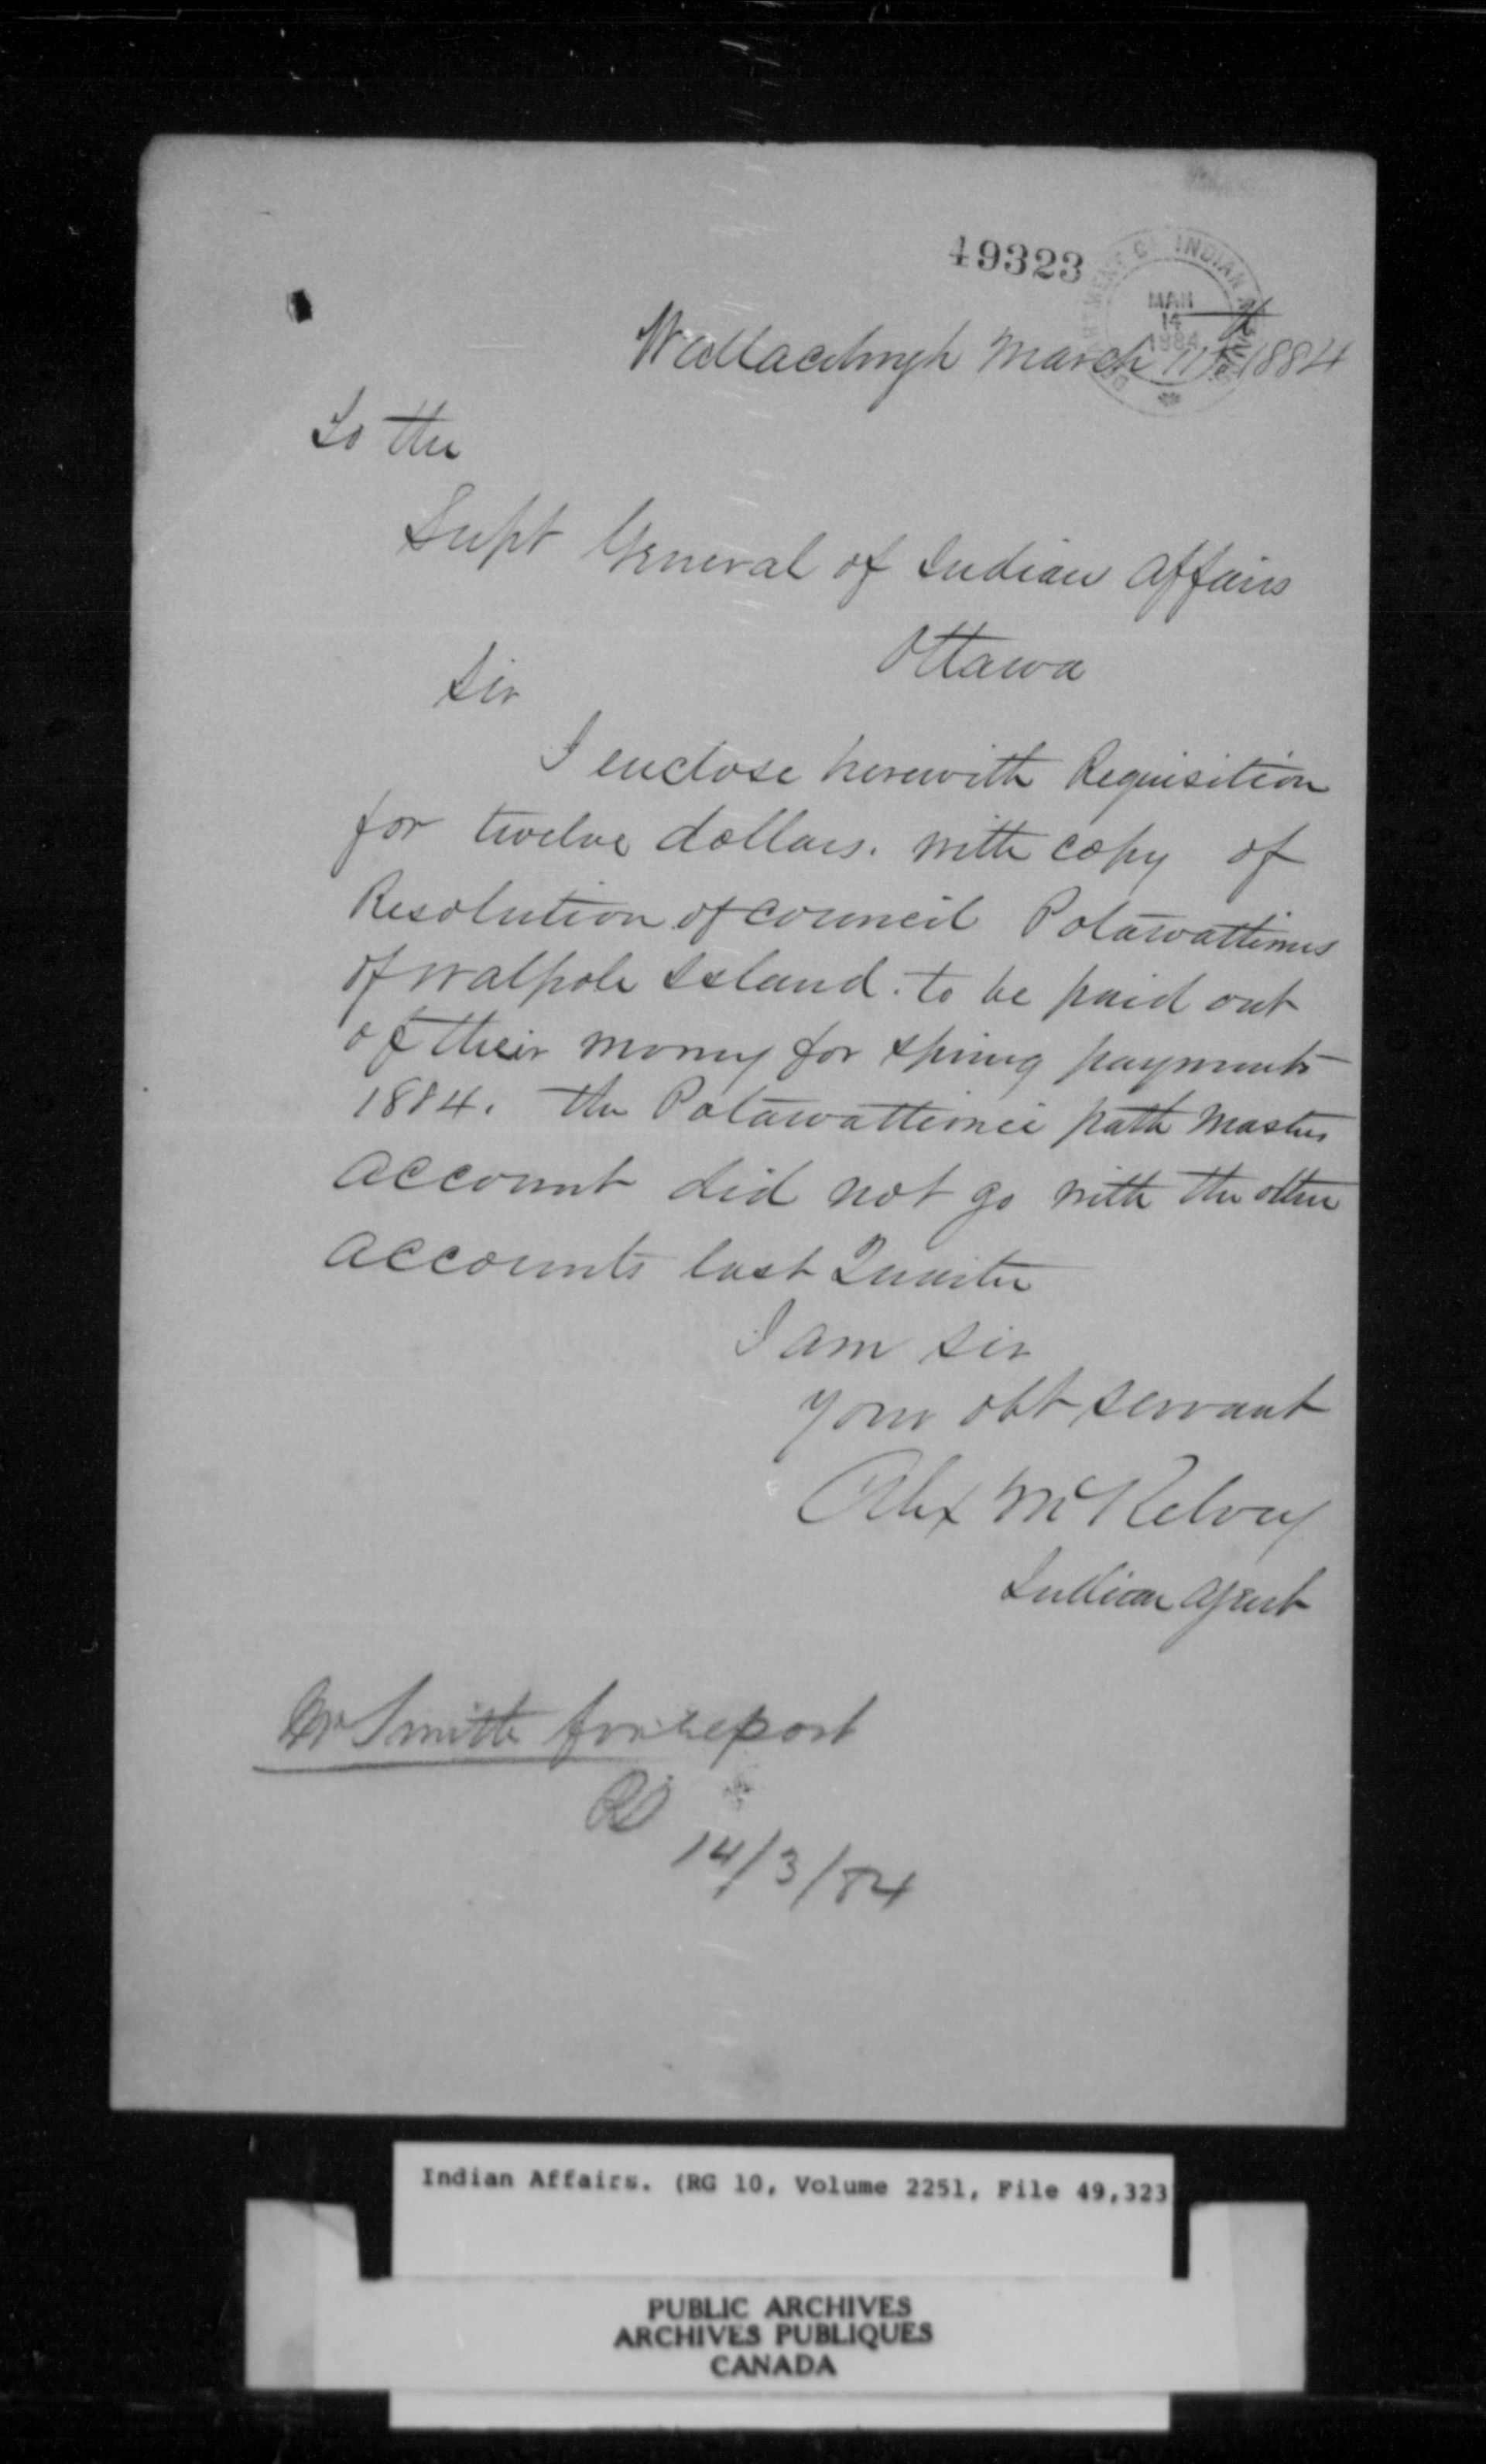 49323
DEPARTMENT OF INDIAN AFFAIRS
MAR
14
1884
Wallaceburgh March 11th 1884
To the
Supt General of Indian Affairs
Ottawa
Sir
I enclose herewith Requisition
for twelve dollars. with copy of
Resolution of council Potawattimies
of Walpole Island. to be paid out
of their money for spring payments
1884. the Potawattimei path Masters
account did not go with the other
accounts last Quarter
I am sir
your obt servant
Alex McKelvey
Indian Agent
Mr Smith for report
14/3/84
Indian Affairs. (RG 10, Volume 2251, File 49,323
PUBLIC ARCHIVES
ARCHIVES PUBLIQUES
CANADA